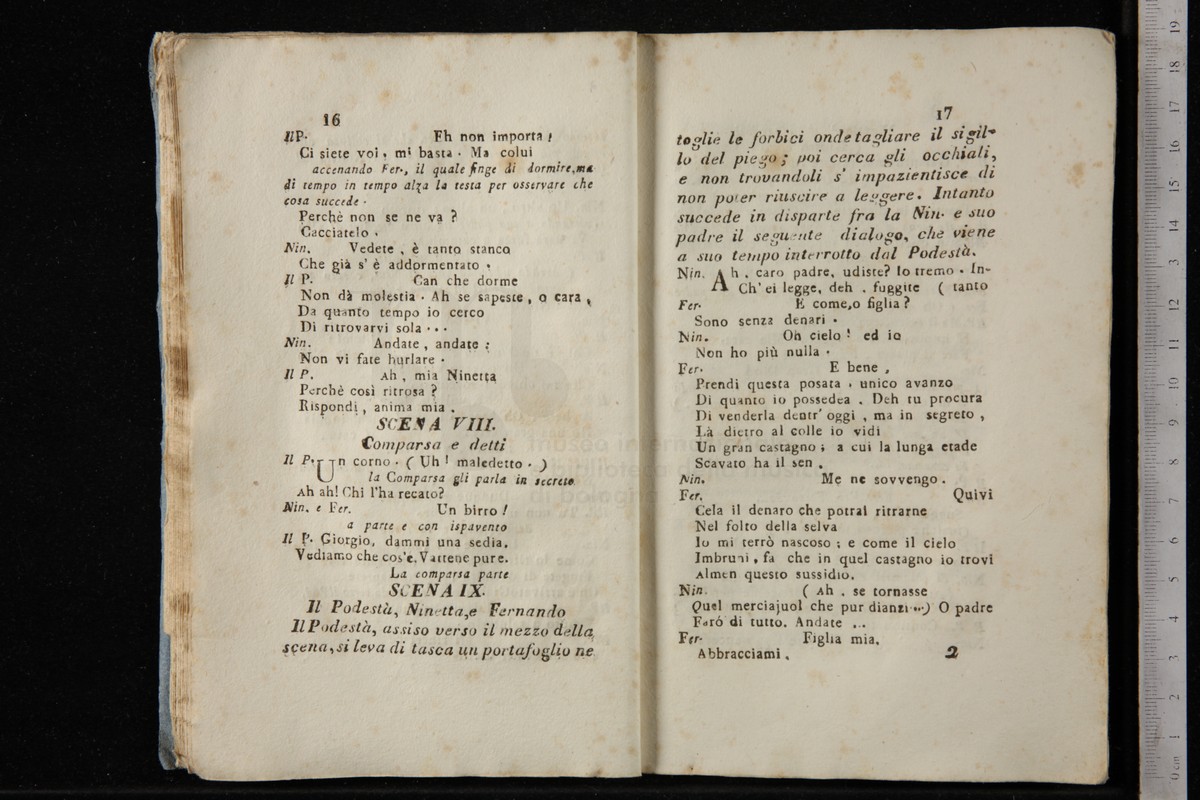 16
Il P. Eh non importa !
Ci siete voi, mi basta. Ma colui
accenando Fer., il quale finge di dormire, ma
di tempo in tempo alza la testa per osservare che
cosa succede.
Perchè non se ne va ?
Cacciatelo.
Nin. Vedete, è tanto stanco
Che già s' è addormentato.
Il P. Can che dorme
Non dà molestia. Ah se sapeste, o cara,
Da quanto tempo io cerco
Di ritrovarvi sola...
Nin. Andate, andate ;
Non vi fate burlare.
Il P. Ah, mia Ninetta
Perchè così ritrosa ?
Rispondi, anima mia.
SCENA VIII.
Comparsa e detti
Il P. Un corno. ( Uh ! maledetto. )
la Comparsa gli parla in secreto
Ah ah! Chi l'ha recato?
Nin. e Fer. Un birro !
a parte e con ispavento
Il P. Giorgio, dammi una sedia.
Vediamo che cos'è. Vattene pure.
La comparsa parte
SCENA IX.
Il Podestà, Ninetta, e Fernando
Il Podestà, assiso verso il mezzo della
scena, si leva di tasca un portafoglio ne
17
toglie le forbici onde tagliare il sigil-
lo del piego; poi cerca gli occhiali,
e non trovandoli s' impazientisce di
non poter riuscire a leggere. Intanto
succede in disparte fra la Nin. e suo
padre il seguente dialogo, che viene
a suo tempo interrotto dal Podestà.
Nin. Ah. caro padre, udiste? Io tremo. In-
Ch' ei legge, deh. fuggite ( tanto
Fer. E come, o figlia ?
Sono senza denari.
Nin. Oh cielo ! ed io
Non ho più nulla.
Fer. E bene,
Prendi questa posata, unico avanzo
Di quanto io possedea. Deh tu procura
Di venderla dentr' oggi, ma in segreto,
Là dietro al colle io vidi
Un gran castagno ; a cui la lunga etade
Scavato ha il sen.
Nin. Me ne sovvengo.
Fer. Quivi
Cela il denaro che potrai ritrarne
Nel folto della selva
Io mi terrò nascoso ; e come il cielo
Imbruni, fa che in quel castagno io trovi
Almen questo sussidio.
Nin. ( Ah. se tornasse
Quel merciajuol che pur dianzi...) O padre
Faró di tutto. Andate ...
Fer. Figlia mia.
Abbracciami. 2
museo inter
biblioteca della musica
di bologna
0 cm 1 2 3 4 5 6 7 8 9 10 11 12 13 14 15 16 17 18 19